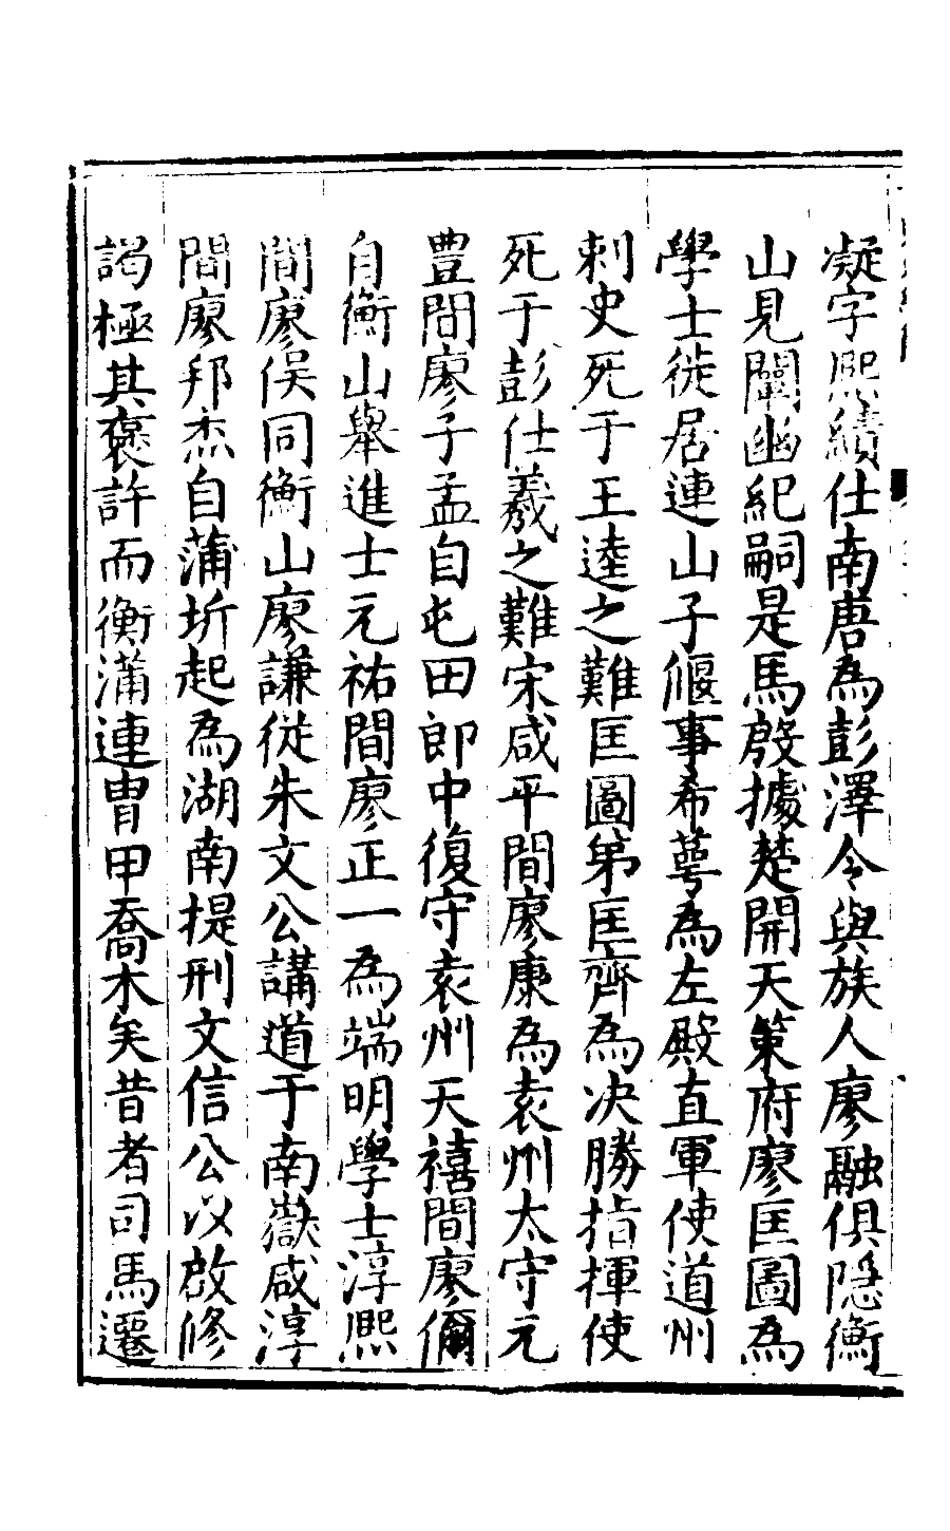 凝字熙績仕南唐為彭澤令與族人廖融俱隱衡
山見闡幽紀嗣是馬殷據楚開天策府廖匡圖為
學士徙居連山子偃事希萼為左殿直軍使道州
刺史死于王逵之難匡圖弟匡齊為决勝指揮使
死于彭仕羲之難宋咸平間廖康為袁州太守元
豊間廖子孟自屯田郎中復守袁州天禧間廖儞
自衡山舉進士元祐間廖正一為端明學士淳熙
間廖俣同衡山廖謙從朱文公講道于南嶽咸淳
間廖邦杰自蒲圻起為湖南提刑文信公以啟修
謁極其褒許而衡蒲連胄甲喬木矣昔者司馬遷